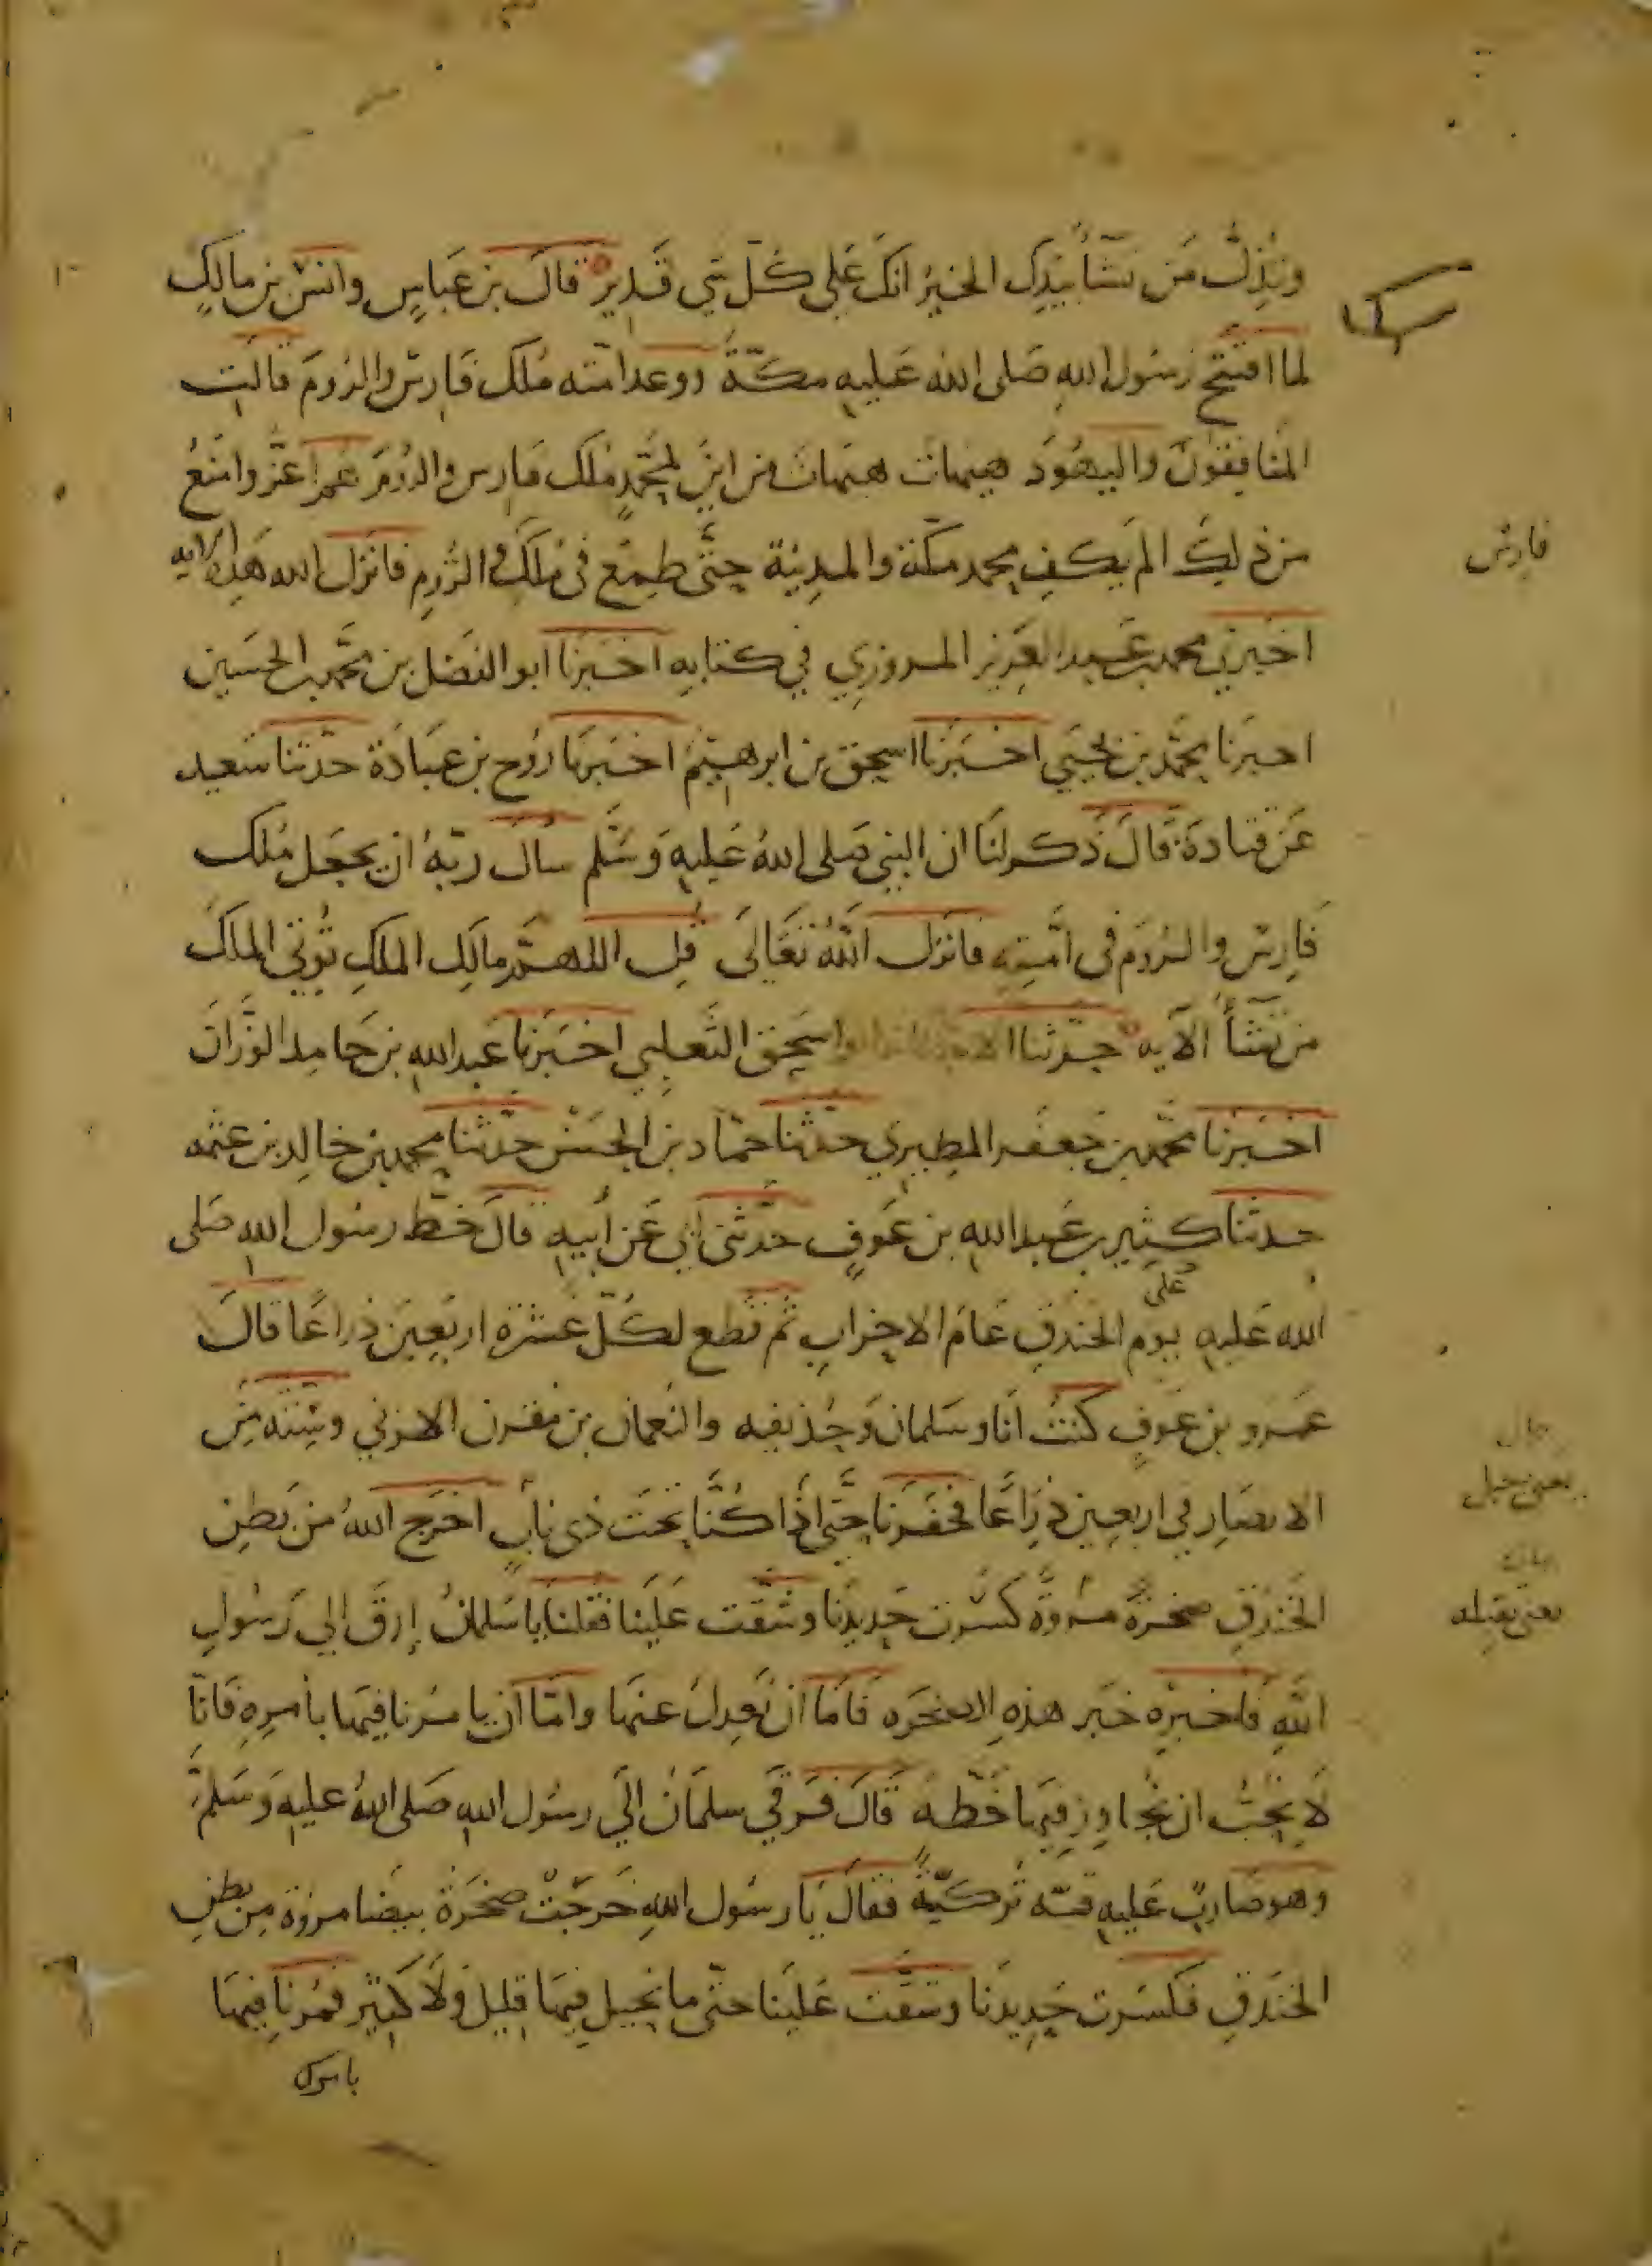 وتذل من تشأ بيدك الخير انك على كل شي قدير قال بن عباس وانس بن مالك
لما افتتح رسول الله صلى الله عليه مكة ووعد امته ملك فارس والروم قالت
المنافقون واليهود هيهات هيهات من اين لمحمد ملك فارس والروم هم اعز وامنع
من ذلك الم يكف محمد مكة والمدينة حتى طمع في ملك الروم فانزل الله هذه الايه
فارس
اخبرني محمد بن عبد العزيز المروزي في كتابه اخبرنا ابو الفضل بن محمد بن الحسين
اخبرنا محمد بن يحيي اخبرنا اسحق بن ابرهيم اخبرنا روح بن عبادة حدثنا سعيد
عن قتادة قال ذكر لنا ان النبي صلى الله عليه وسلم سال ربه ان يجعل ملك
فارس والروم في امته فانزل الله تعالى قل اللهم مالك الملك توتي الملك
من تشأ الآيه حدثنا الاستاذ ابو اسحق الثعلبي اخبرنا عبد الله بن حامد الوزان
اخبرنا محمد بن جعفر المطيري حدثنا حماد بن الحسن حدثنا محمد بن خالد بن عثمه
حدثنا كثير بن عبد الله بن عوف حدثني ابي عن أبيه قال خط رسول الله صلى
الله عليه على يوم الخندق عام الاحزاب ثم قطع لكل عشرة اربعين ذراعا قال
عمرو بن عوف كنت انا وسلمان وحذيفه والنعمان بن مقرن المزني وستة من
الانصار في اربعين ذراعا فحفرنا حتى اذا كنا تحت ذى ناب اخرج الله من بطن
يعنى جبل
الخندق صخرة مروة كسرت حديدنا وشقت علينا فقلنا يا سلمان إرق الي رسول
الله فاخبره خبر هذه الصخره فاما ان نعدل عنها واما ان يامرنا فيها بأمره فانا
لا نحب ان نجاوز فيها خطه قال فرقي سلمان الي رسول الله صلى الله عليه وسلم
وهو ضارب عليه قبة تركية فقال يا رسول الله خرجت صخرة بيضا مروة من بطن
الخندق فكسرت حديدنا وشقت علينا حتى ما نحيل فيها قليل ولا كثير فمرنا فيها
بامرك